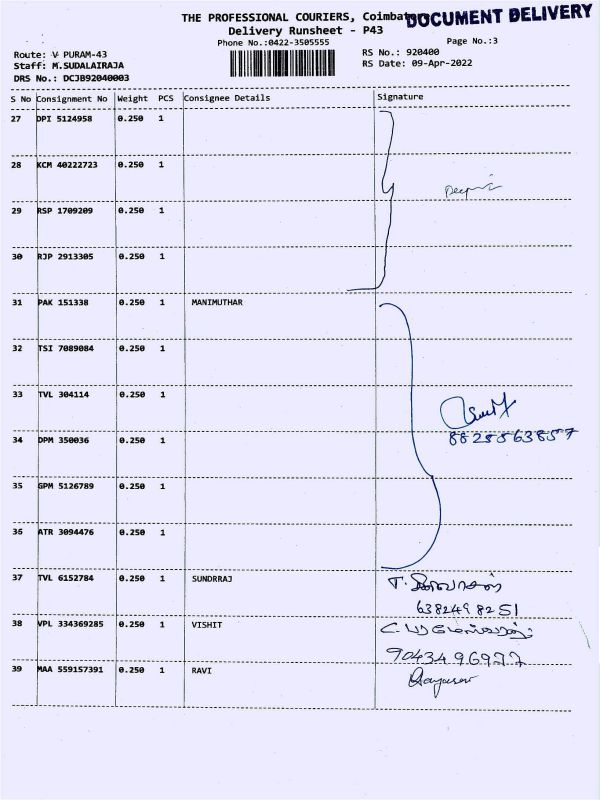 THE PROFESSIONAL COURIERS, Coimbato
DOCUMENT DELIVERY
Delivery Runsheet - P43
Phone No.:0422-3505555
Page No.:3
Route: V PURAM-43
RS No.: 920400
Staff: M.SUDALAIRAJA
RS Date: 09-Apr-2022
DRS No.: DCJB92040003
S No Consignment No Weight PCS Consignee Details Signature
27 DPI 5124958 0.250 1
28 KCM 40222723 0.250 1
29 RSP 1709209 0.250 1
30 RJP 2913305 0.250 1
31 PAK 151338 0.250 1 MANIMUTHAR
32 TSI 7089084 0.250 1
33 TVL 304114 0.250 1
34 DPM 350036 0.250 1
8825563857
35 GPM 5126789 0.250 1
36 ATR 3094476 0.250 1
37 TVL 6152784 0.250 1 SUNDRRAJ
6382498251
38 VPL 334369285 0.250 1 VISHIT
9043496977
39 MAA 559157391 0.250 1 RAVI